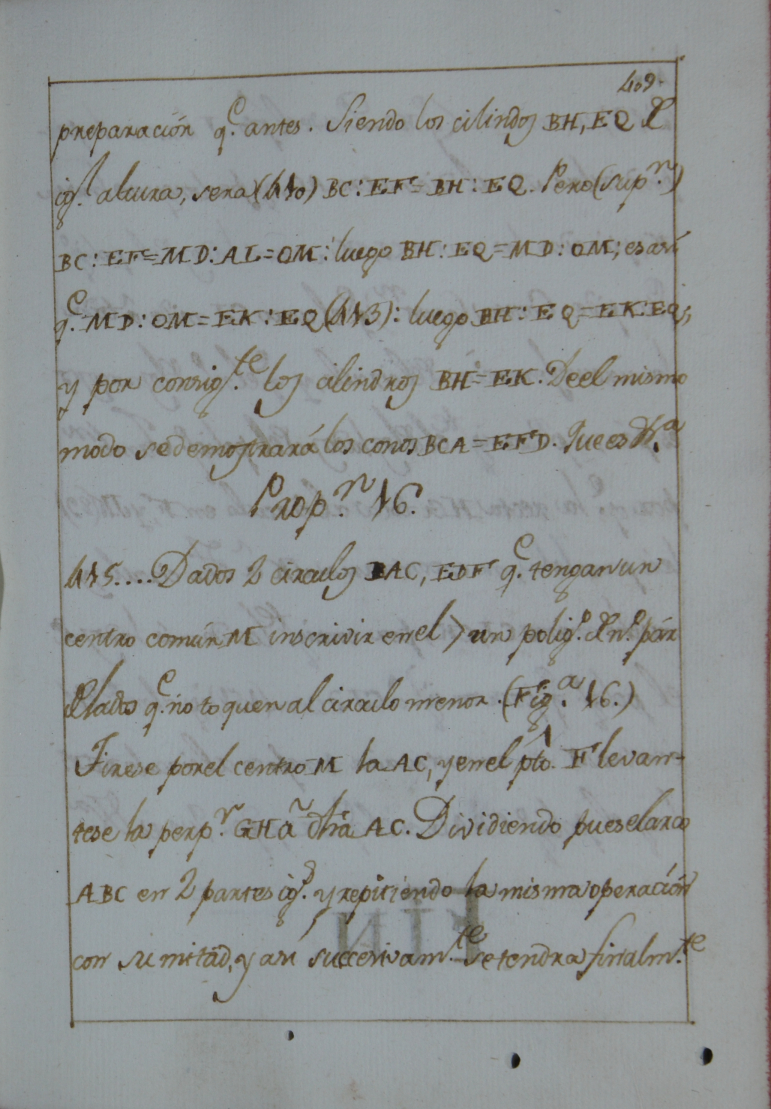 409.
preparación q.e antes. Siendo los cilindos BH, EQ de
ig.l altura, sera (410) BC : EF = BH : EQ. Pero (sup.n)
BC : EF = MD : AL = OM : luego BH : EQ = MD : OM; es así
q.e MD : OM = EK : EQ (413): luego BH : EQ = EK : EQ;
y por consig.te los cilindros BH = EK. De el mismo
modo se demostrará los conos BCA = EFD. Que es
Prop.n 16.
415.... Dados 2 circulos BAC, EDF q.e tengan un
centro común M inscrivir en el > un polig.o de n.o pár
de lados q.e no toquen al circulo menor. (Fig.a 16.)
Tirese por el centro M la AC, y en el pto. F levan-
tese la perp.r GH á dha AC. Dividiendo pues el arco
ABC en 2 partes ig.s y repitiendo la misma operación
con su mitad, y así succesivam.te se tendra finalm.te
FIN